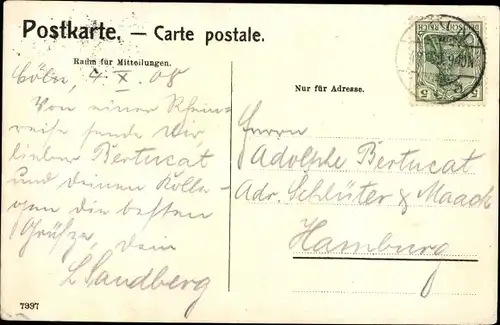 Postkarte. — Carte postale.
Raum für Mitteilungen.
Nur für Adresse.
Cöln, 4. X. 08
Von einer Rhein-
reise sende Dir,
lieber Bertucat
und deinen Kolle-
gen die besten
Grüße, dein
L Sandberg
Herrn
Adolphe Bertucat
Adr. Schlüter & Maack
Hamburg
7997
5 5